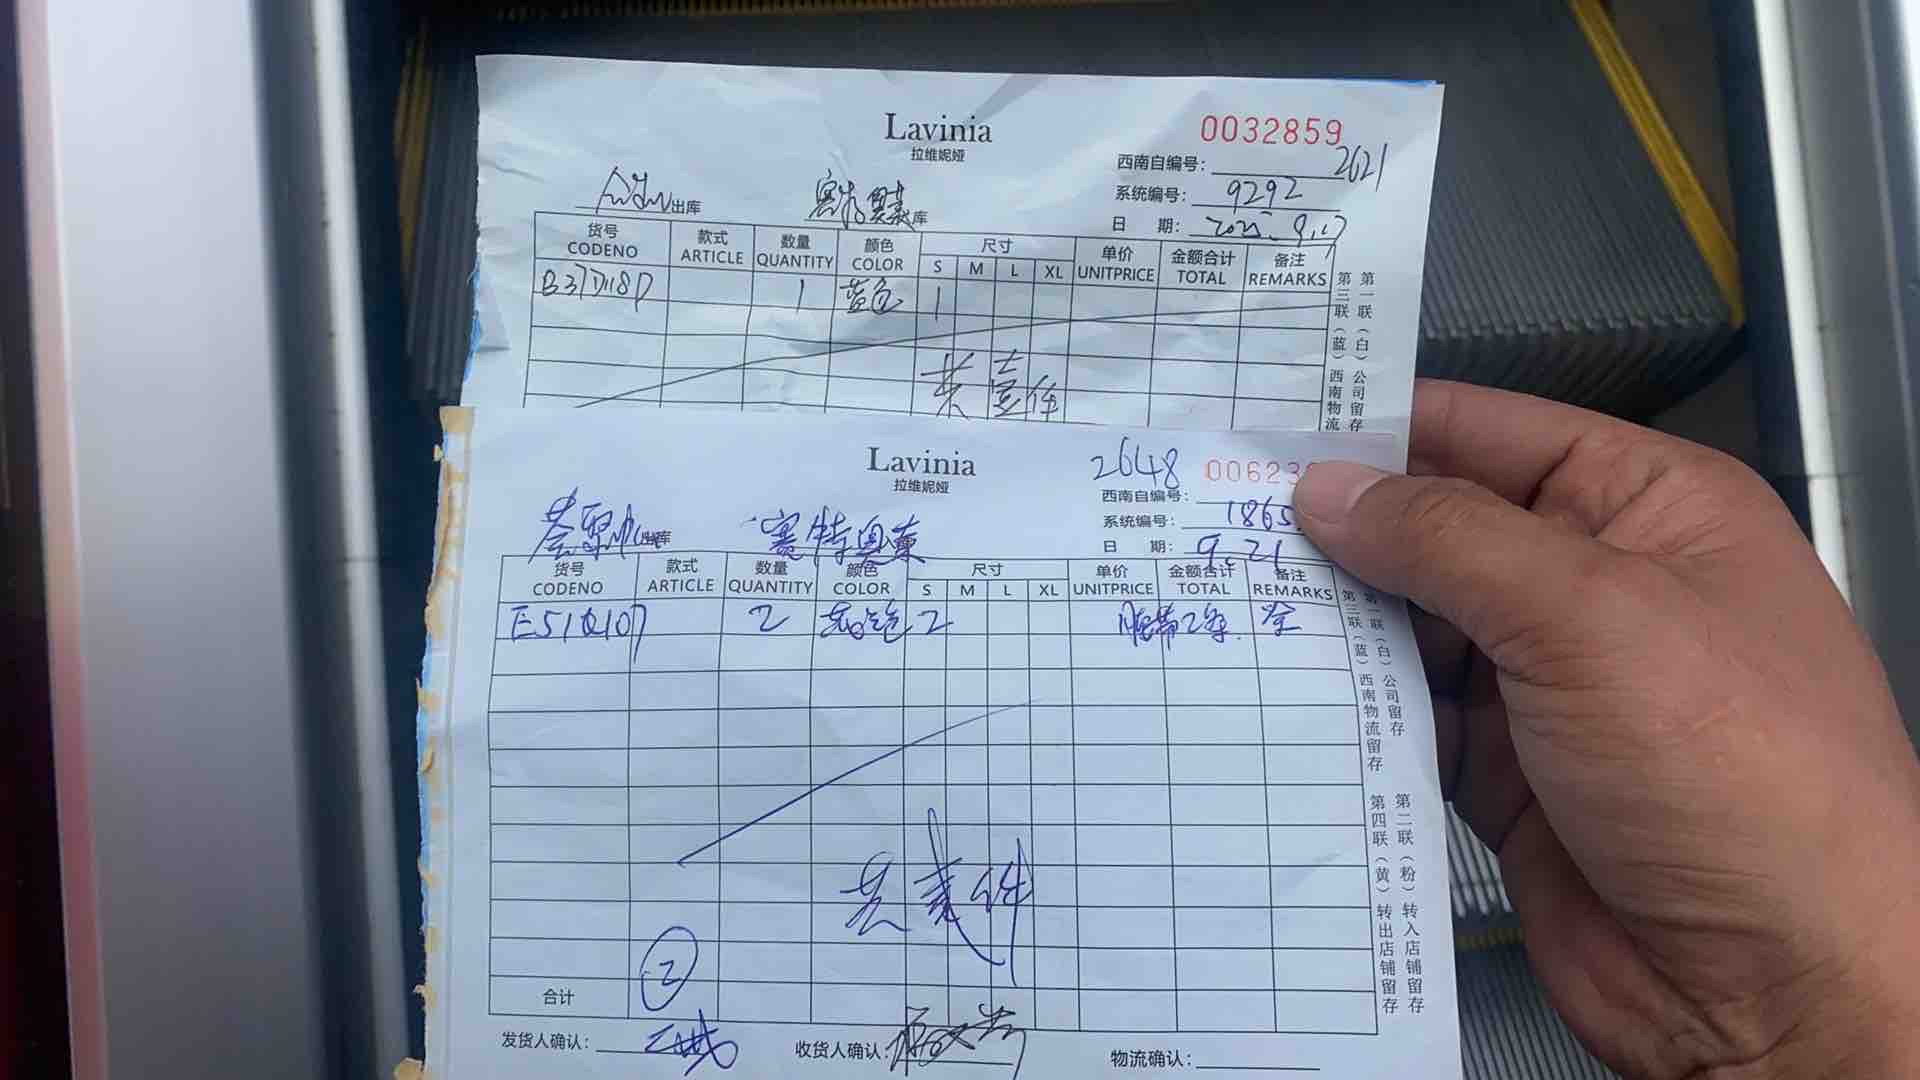 Lavinia
拉维妮娅
0032859
西南自编号: 2621
系统编号: 9292
出库 赛特奥莱库
日 期: 2025.9.17
货号 款式 数量 颜色 尺寸 单价 金额合计 备注
CODENO ARTICLE QUANTITY COLOR S M L XL UNITPRICE TOTAL REMARKS
B37D118D 1 蓝色 1
共壹件
第一联(白)公司留存
第三联(蓝)西南物流
Lavinia
拉维妮娅
2648 00623
西南自编号:
系统编号: 1865
出库 赛特奥莱
日 期: 9.21
货号 款式 数量 颜色 尺寸 单价 金额合计 备注
CODENO ARTICLE QUANTITY COLOR S M L XL UNITPRICE TOTAL REMARKS
E51Q107 2 2 腰带2条 全
件
2
合计
发货人确认: 收货人确认: 物流确认:
第一联(白)公司留存
第三联(蓝)西南物流留存
第二联(粉)转入店铺留存
第四联(黄)转出店铺留存